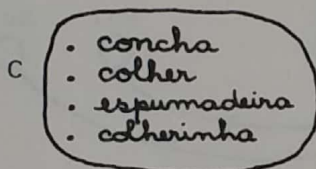 C
. concha
. colher
. espumadeira
. colherinha